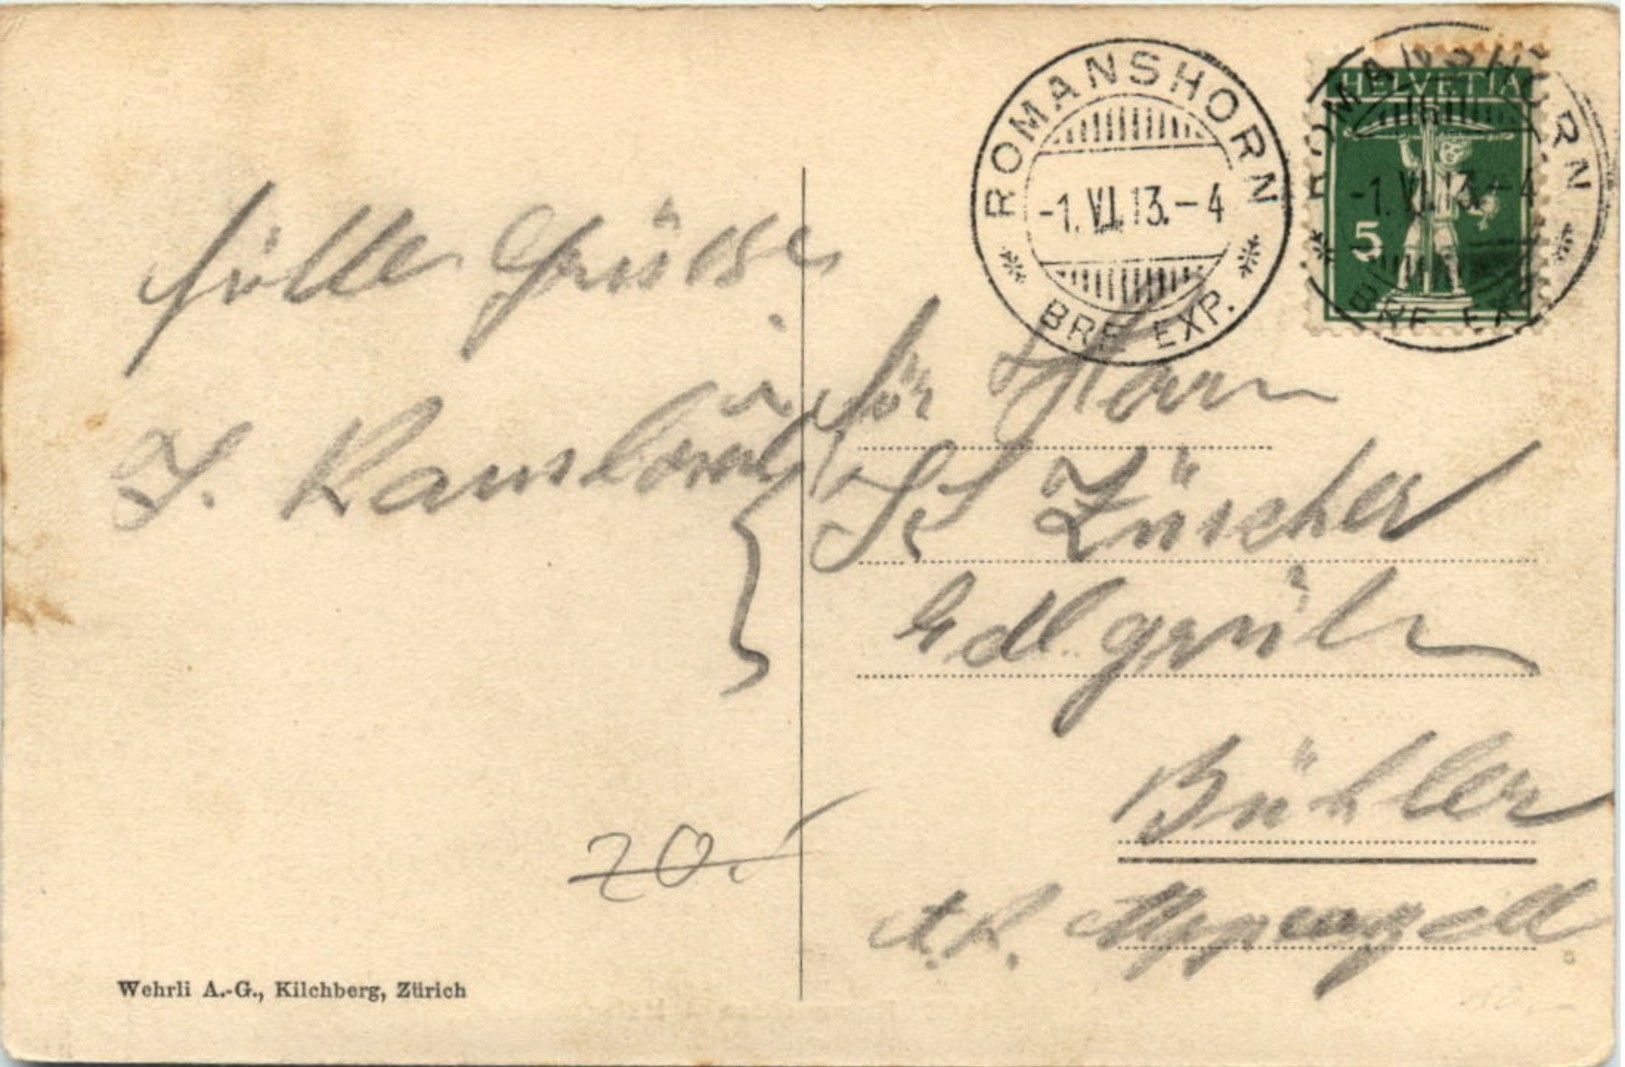 ROMANSHORN
-1.VI.13.-4
BRF. EXP.
HELVETIA
5
ROMANSHORN
-1.VI.13.-4
BRF. EXP.
Grüsse
J.
für Herrn
Zürcher
Bühler
A.R. Appenzell
20.-
Wehrli A.-G., Kilchberg, Zürich